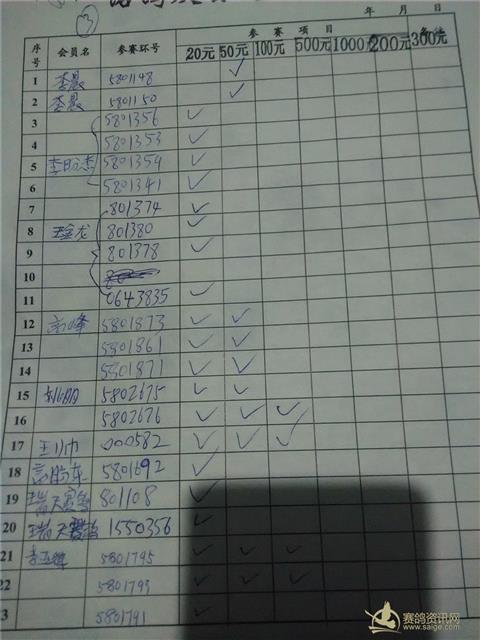 ③
年 月 日
序号 会员名 参赛环号 参赛项目 备注
20元 50元 100元 500元 1000元 200元 300元
1 李晨 5801148 ✓
2 李晨 5801150 ✓
3 5801356 ✓
4 5801353 ✓
5 5801354 ✓
6 5801341 ✓
7 801374 ✓
8 王金龙 801380 ✓
9 801378 ✓
10
11 0643835 ✓
12 高峰 5801873 ✓ ✓
13 5801861 ✓ ✓
14 5801871 ✓ ✓
15 5802675 ✓ ✓
16 5802676 ✓ ✓ ✓
17 000582 ✓ ✓ ✓
18 5801692 ✓
19 瑞天赛鸽 801108 ✓
20 瑞天赛鸽 1550356 ✓
21 5801795 ✓ ✓ ✓
22 5801793 ✓ ✓ ✓
3 5801791 ✓
赛鸽资讯网
www.saige.com